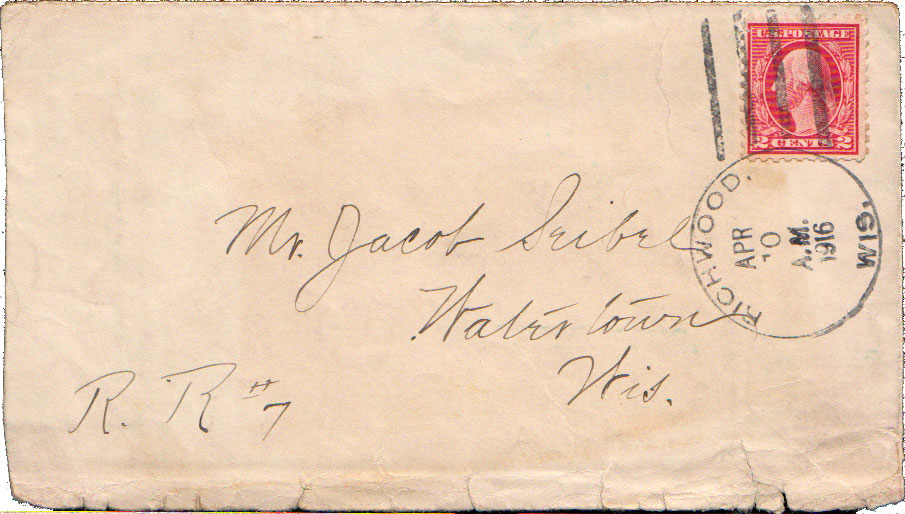 U.S. POSTAGE
2 CENTS 2
RICHWOOD, WIS.
APR
10
A.M.
1916
Mr. Jacob Seibel
Watertown
Wis.
R. R #7